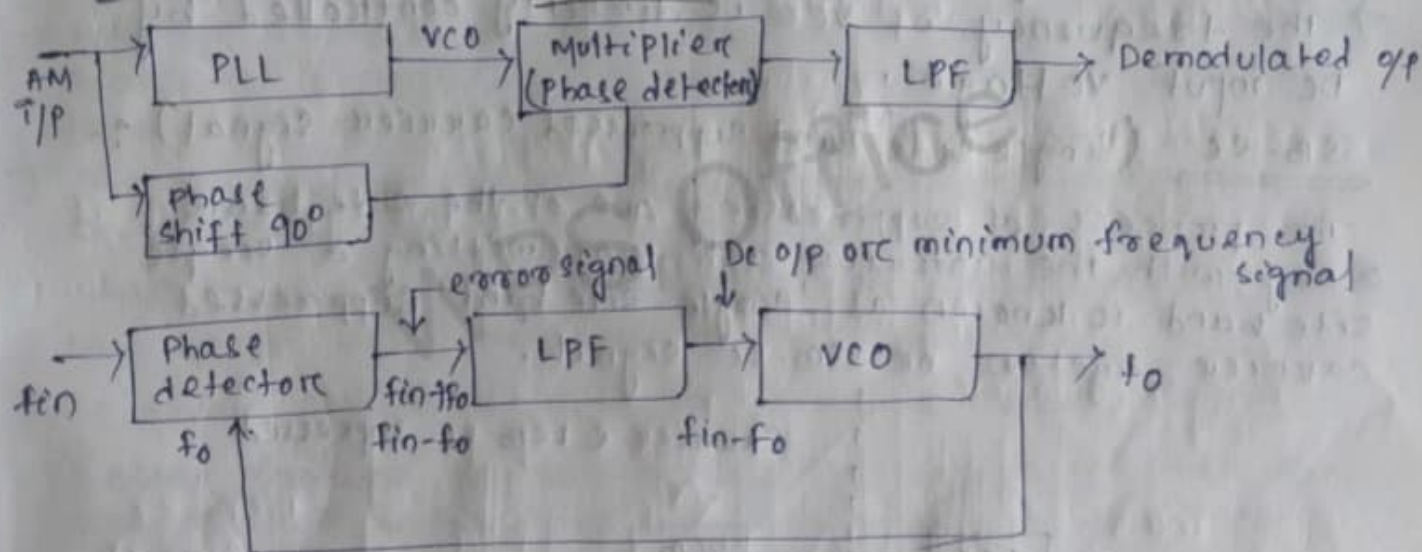 AM
I/P
PLL
VCO
Multiplier
(phase detecter)
LPF
Demodulated o/p
phase
shift 90°
error signal
Dc o/p orc minimum frequency
signal
fin
Phase
detectorc
fo
fin+fo
fin-fo
LPF
fin-fo
VCO
fo
Office